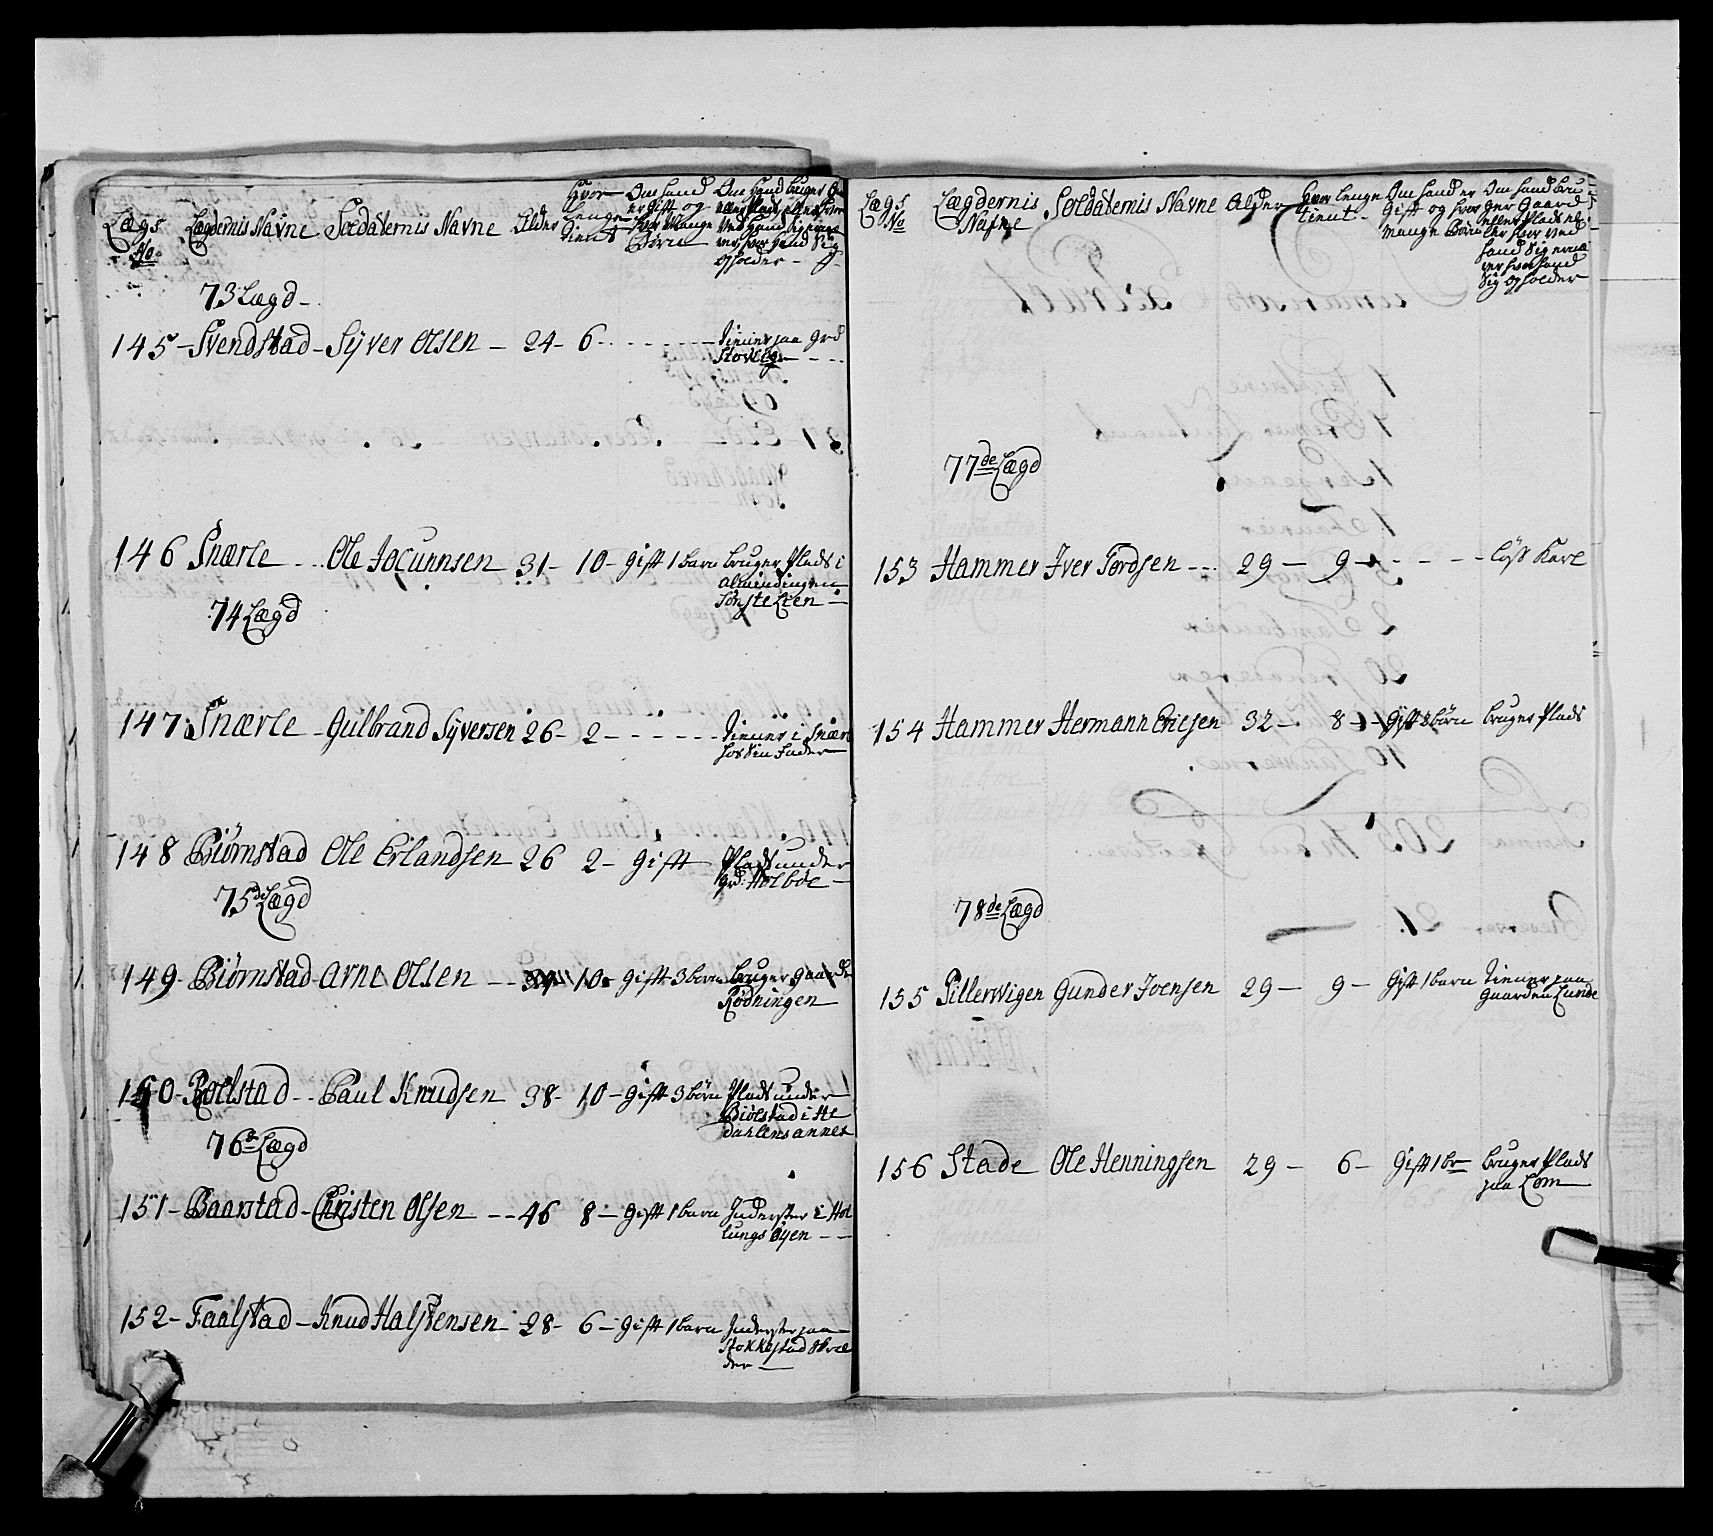 Lægs No
Lægdernis Navne
Soldaternis Navne
Alder
Hvor Lenge tient
Om hand er Gift og hvor Mange Børn
Om hand bruger
ophoder
73 Lægd
145 - Svendstad - Syver Olsen - 24 - 6 - tiener paa Grd
146 Snærle - Ole Jocumsen 31 - 10 - Gift 1 barn bruger Plads i
almindingen
74 Lægd
147 Snærle - Gulbrand Syversen 26 - 2 - tiener i Snærle
hos Sin Fader
148 Biørnstad Ole Erlandsen 26 2 - Gift Plads under
Grd: Holbøe
75de Lægd
149 - Biørnstad - Arne Olsen - 10 - Gift 3 barn bruger gaarden
Rödningen
150 - Paul Knudsen - 38 - 10 - Gift 3 børn Plads under
Biølstad i He
dahlens annex
76de Lægd
151 - Baarstad - Christen Olsen - 46 8 - Gift 1 barn Inderster i Hol
lungs Øyen
152 - Faalstad - Knud Halstensen - 28 - 6 - Gift 1 barn Inderster paa
Stokkestad
der
Lægs No
Lægdernis Nafne
Soldaternis Navne
Alder
Hvor Lenge tient
Om hand er Gift og hvor mange Børn
Om hand bruger Gaard
eller Plads el
ler hvor ved
hand Sig ernæ
rer hvor hand
Sig opholder
77de Lægd
153 Hammer Iver Tordsen - 29 - 9 - Løss Karl
154 Hammer Hermann Ericsen 32 - 8 - Gift børn bruger Plads
78de Lægd
155 Pillerwigen Gunder Joensen 29 - 9 - Gift 1 barn tiener paa
Gaarden Lunde
156 Stade Ole Henningsen 29 - 6 - Gift 1 br bruger Plads
paa Lom